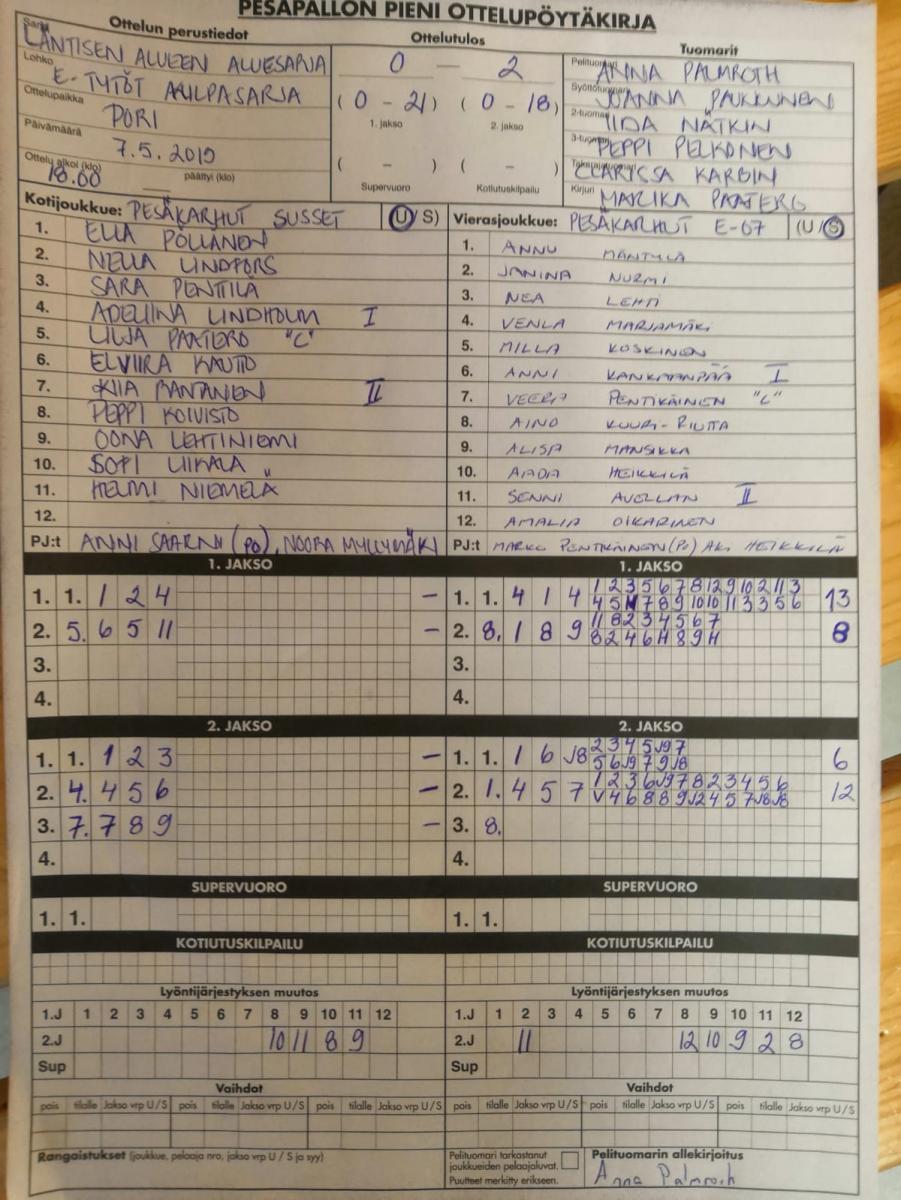 PESÄPALLON PIENI OTTELUPÖYTÄKIRJA
Ottelun perustiedot
Sarja LÄNTISEN ALUEEN ALUESARJA
Lohko E-TYTÖT
Ottelupaikka PORI
Päivämäärä 7.5.2019
Ottelu alkoi (klo) 18.00 päättyi (klo)
Ottelutulos
0 — 2
(0 - 21) (0 - 18)
1. jakso 2. jakso
( - ) ( - )
Supervuoro Kotiutuskilpailu
Tuomarit
Pelituomari ANNA PALMROTH
Syöttötuomari JOANNA PAUKKUNEN
2-tuomari IIDA NÄTKIN
3-tuomari PEPPI PELKONEN
Takarajatuomari CLARISSA KARBIN
Kirjuri MARIKA PAATERO
Kotijoukkue: PESÄKARHUT SUSSET (U/S)
1. ELLA PÖLLÄNEN
2. NELLA LINDFORS
3. SARA PENTTILÄ
4. ADELIINA LINDHOLM I
5. LILJA PAATERO "C"
6. ELVIIRA KAUTTO
7. KIIA RANTANEN II
8. PEPPI KOIVISTO
9. OONA LEHTINIEMI
10. SOFI LIIKALA
11. HELMI NIEMELÄ
12.
PJ:t ANNI SAARNI (PO), NOORA MYLLYMÄKI
Vierasjoukkue: PESÄKARHUT E-07 (U/S)
1. ANNU MÄNTYLÄ
2. JANINA NURMI
3. NEA LEHTI
4. VENLA MARJAMÄKI
5. MILLA KOSKINEN
6. ANNI KANKAANPÄÄ I
7. VEERA PENTIKÄINEN "C"
8. AINO KUURI-RIUTTA
9. ALISA MANSIKKA
10. AADA HEIKKILÄ
11. SENNI AVELLAN II
12. AMALIA OIKARINEN
PJ:t MARKO PENTIKÄINEN (PO) AKI HEIKKILÄ
1. JAKSO
1. 1. 1 2 4 –
2. 5. 6 5 11 –
3.
4.
1. JAKSO
1. 1. 4 1 4 13
2. 8. 1 8 9 8
3.
4.
2. JAKSO
1. 1. 1 2 3 –
2. 4. 4 5 6 –
3. 7. 7 8 9 –
4.
2. JAKSO
1. 1. 1 6 6
2. 1. 4 5 7 12
3. 8.
4.
SUPERVUORO
1. 1.
SUPERVUORO
1. 1.
KOTIUTUSKILPAILU
KOTIUTUSKILPAILU
Lyöntijärjestyksen muutos
1.J 1 2 3 4 5 6 7 8 9 10 11 12
2.J 10 11 8 9
Sup
Lyöntijärjestyksen muutos
1.J 1 2 3 4 5 6 7 8 9 10 11 12
2.J 11 12 10 9 2 8
Sup
Vaihdot
pois tilalle Jakso vrp U/S pois tilalle Jakso vrp U/S pois tilalle Jakso vrp U/S
Vaihdot
pois tilalle Jakso vrp U/S pois tilalle Jakso vrp U/S pois tilalle Jakso vrp U/S
Rangaistukset (joukkue, pelaaja nro, jakso vrp U / S ja syy)
Pelituomari tarkastanut
joukkueiden pelaajaluvat.
Puutteet merkitty erikseen.
Pelituomarin allekirjoitus
Anna Palmroth